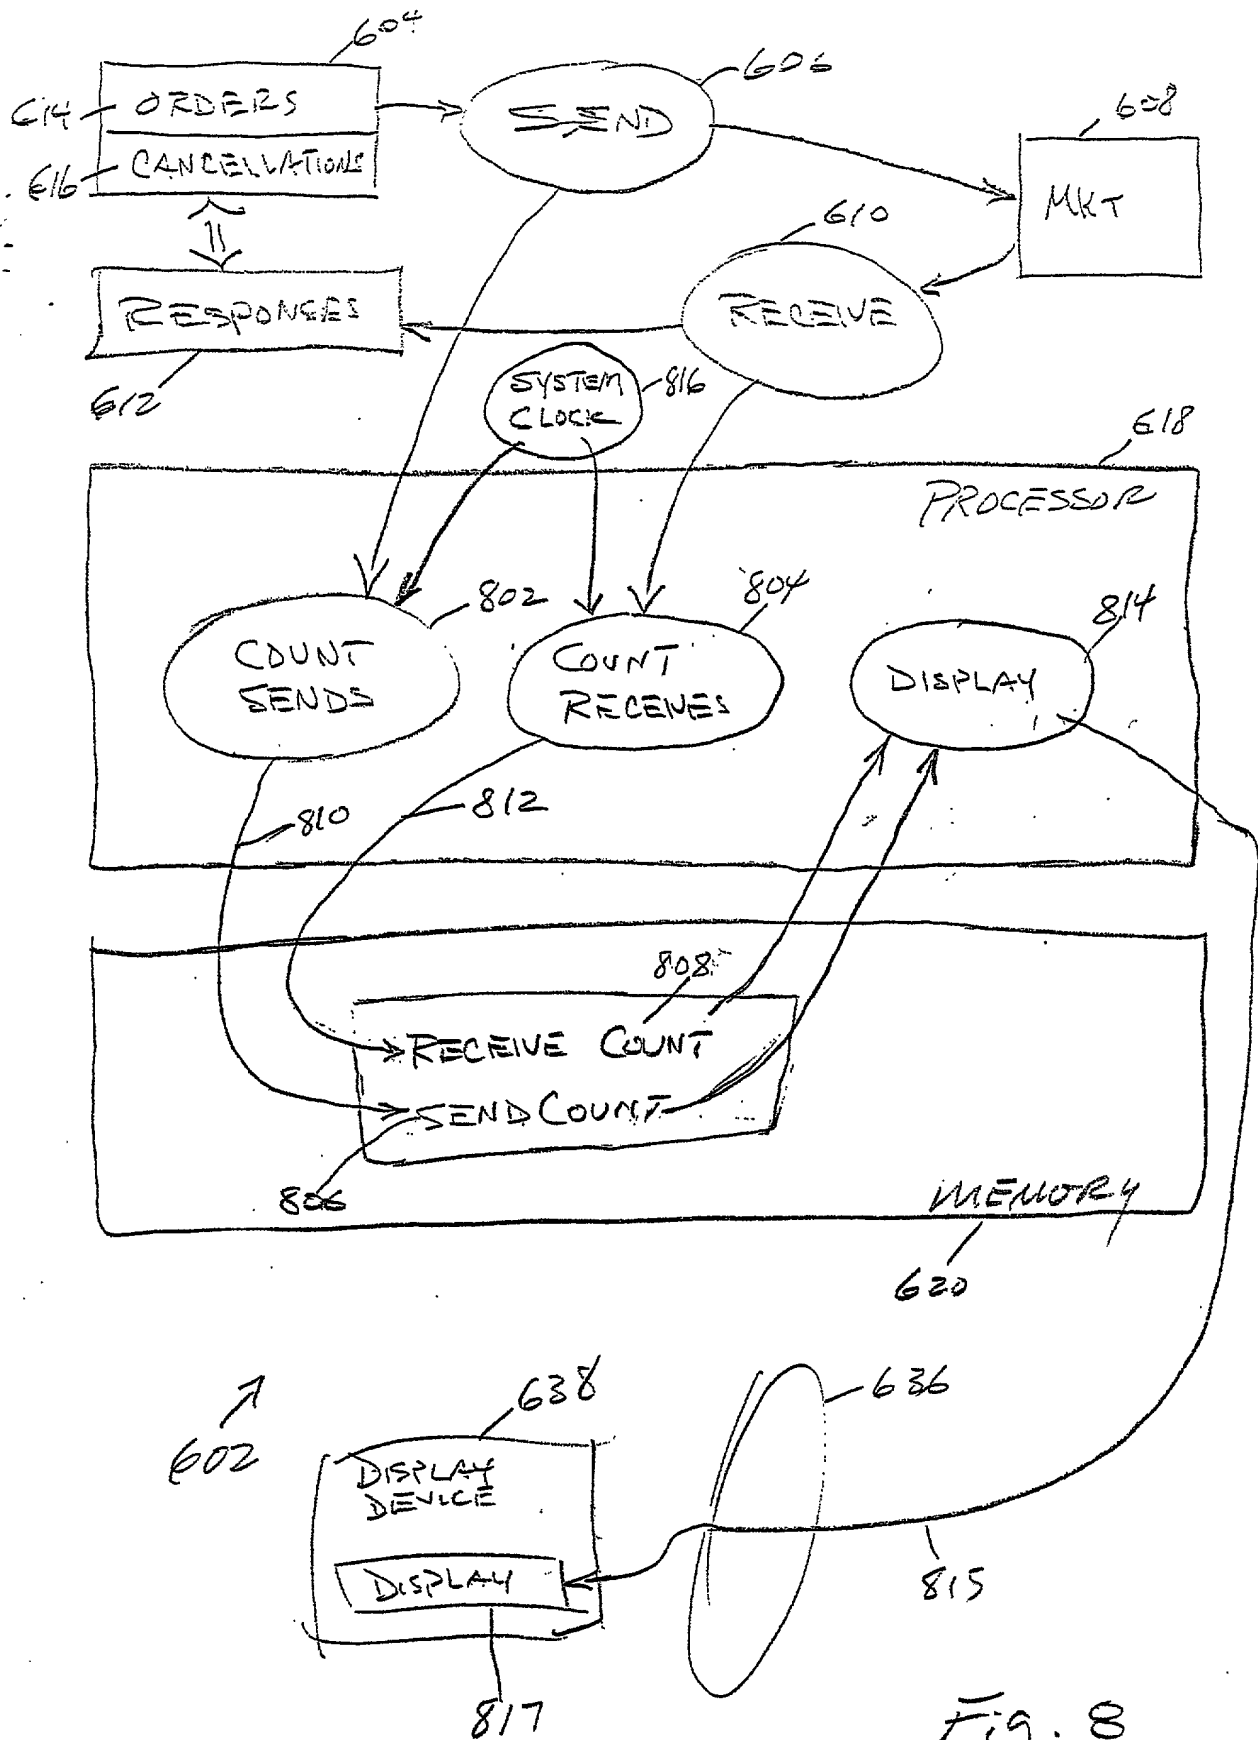 604
614
ORDERS
SEND
606
608
616
CANCELLATIONS
MKT
610
RESPONSES
RECEIVE
612
SYSTEM
CLOCK
816
618
PROCESSOR
802
804
814
COUNT
SENDS
COUNT
RECEIVES
DISPLAY
810
812
808
RECEIVE COUNT
SEND COUNT
806
MEMORY
620
602
638
636
DISPLAY
DEVICE
DISPLAY
815
817
Fig. 8